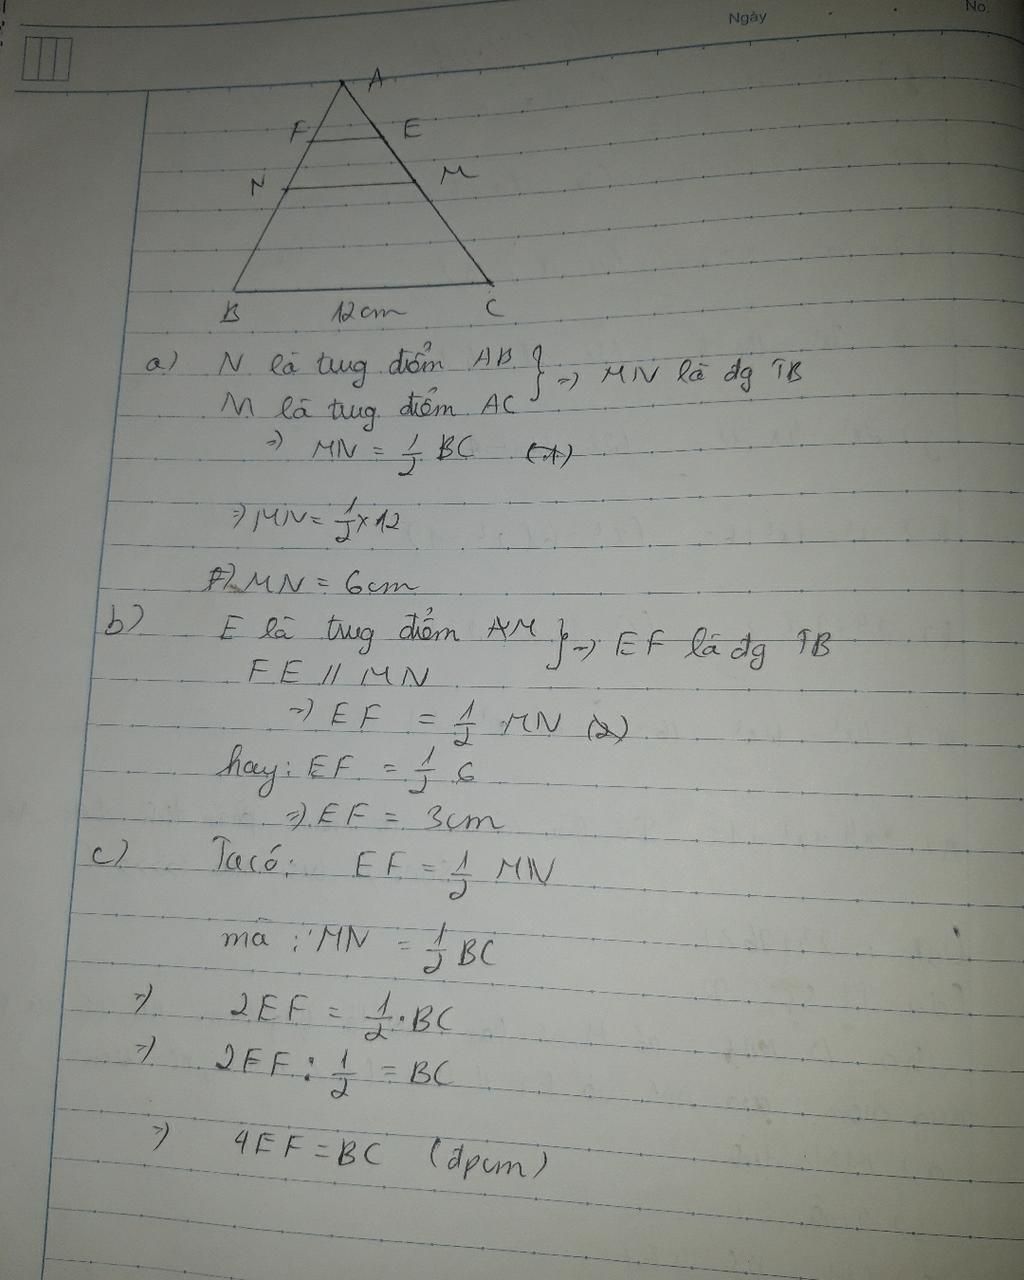 Ngày
No.
A
F E
N M
B 12cm C
a) N là tug điểm AB } => MN là đg TB
M là tug điểm AC
=> MN = 1/2 BC (1)
=> MN = 1/2 x 12
=> MN = 6cm
b) E là tug điểm AM } => EF là đg TB
FE // MN
=> EF = 1/2 MN (2)
hay: EF = 1/2 6
=> EF = 3cm
c) Ta có: EF = 1/2 MN
mà : MN = 1/2 BC
=> 2EF = 1/2 . BC
=> 2EF : 1/2 = BC
=> 4EF = BC (đpcm)